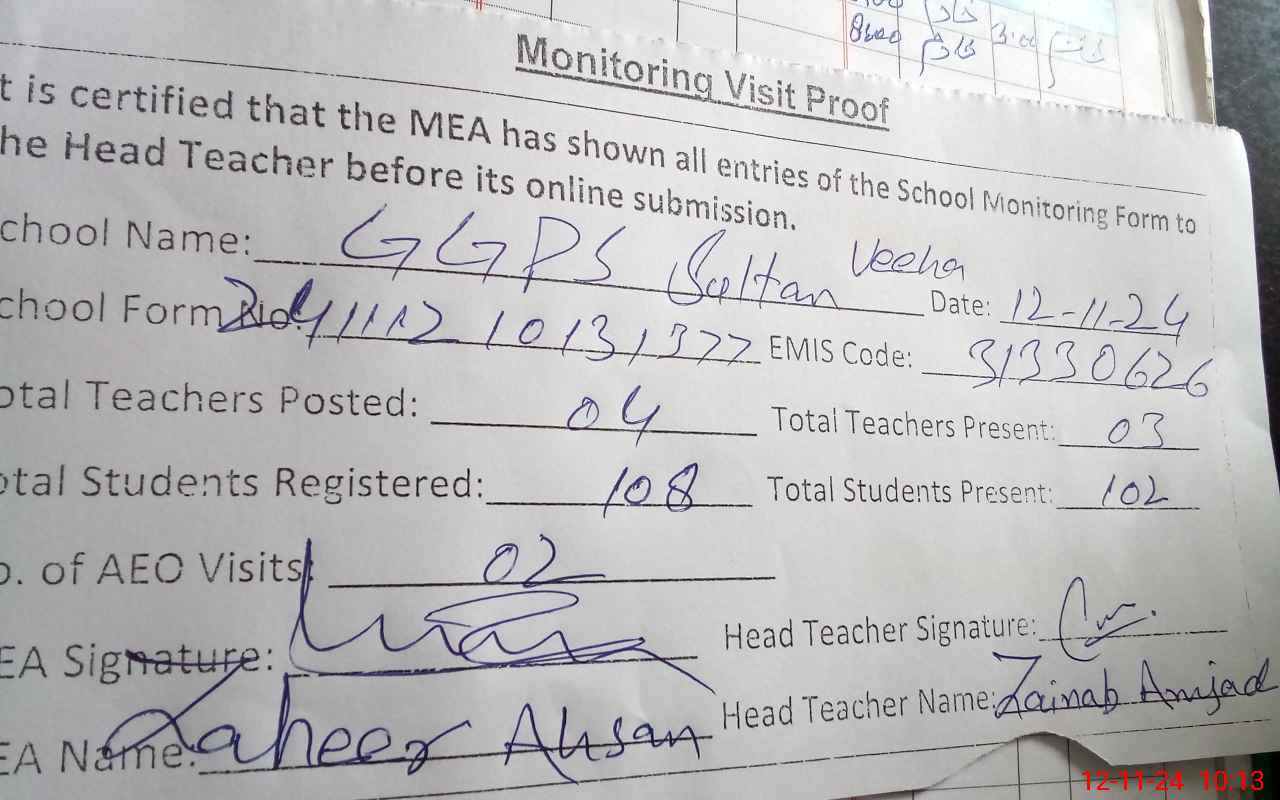 Monitoring Visit Proof
t is certified that the MEA has shown all entries of the School Monitoring Form to
he Head Teacher before its online submission.
chool Name: GGPS Sultan Veeha Date: 12-11-24
chool Form No. EMIS Code: 31330626
otal Teachers Posted: 04 Total Teachers Present: 03
otal Students Registered: 108 Total Students Present: 102
o. of AEO Visits: 02
EA Signature: Head Teacher Signature:
EA Name: Zaheer Ahsan Head Teacher Name: Zainab Amjad
12-11-24 10:13